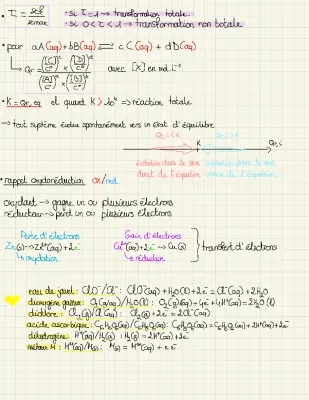 τ = xf/xmax
• si τ = 1 → transformation totale
• si 0 < τ < 1 → transformation non totale
• par aA(aq) + bB(aq) ⇌ cC(aq) + dD(aq)
↳ Qr = ([C]/c°)^c × ([D]/c°)^d / ([A]/c°)^a × ([B]/c°)^b avec [X] en mol.L⁻¹
• K = Qr,eq et quand K > 10⁴ ⇒ réaction totale
→ tout système évolue spontanément vers un état d'équilibre
Qr,i < K Qr,i > K
K Qr,i
évolution dans le sens direct de l'équation
évolution dans le sens inverse de l'équation
• rappel oxydoréduction ox/red
oxydant → gagne un ou plusieurs électrons
réducteur → perd un ou plusieurs électrons
Perte d'électrons Gain d'électrons
Zn(s) → Zn²⁺(aq) + 2e⁻ Cu²⁺(aq) + 2e⁻ → Cu(s) transfert d'électrons
↳ oxydation ↳ réduction
eau de javel : ClO⁻/Cl⁻ : ClO⁻(aq) + H₂O(l) + 2e⁻ = Cl⁻(aq) + 2HO⁻
dioxygène gazeux : O₂(g)/H₂O(l) : O₂(g) + 4e⁻ + 4H⁺(aq) = 2H₂O(l)
dichlore : Cl₂(g)/Cl⁻(aq) : Cl₂(g) + 2e⁻ = 2Cl⁻(aq)
acide ascorbique : C₆H₆O₆(aq)/C₆H₈O₆(aq) : C₆H₈O₆(aq) = C₆H₆O₆(aq) + 2H⁺(aq) + 2e⁻
dihydrogène : H⁺(aq)/H₂(g) : H₂(g) = 2H⁺(aq) + 2e⁻
métaux M : Mⁿ⁺(aq)/M(s) : M(s) = Mⁿ⁺(aq) + n e⁻